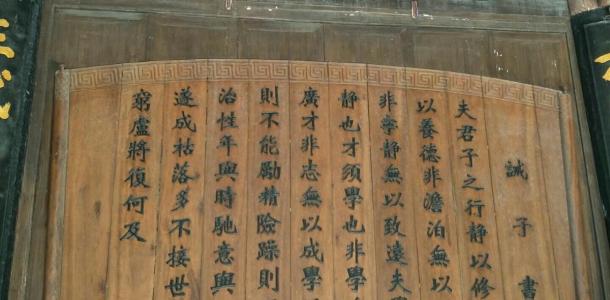 誡子書
夫君子之行静以修
以養德非澹泊無以
非寧静無以致遠夫
静也才須學也非學
廣才非志無以成學
則不能勵精險躁則
治性年與時馳意與
遂成枯落多不接世
窮廬將復何及